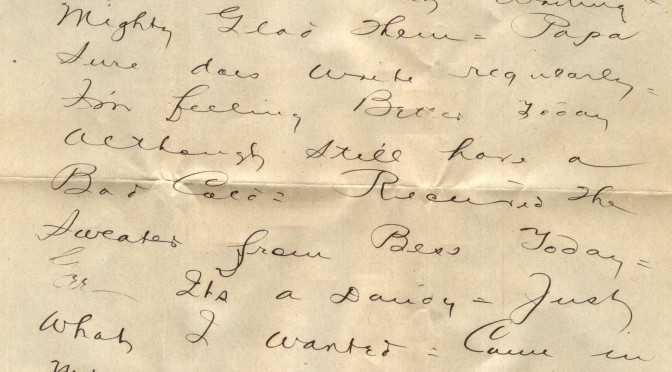 writing
Mighty Glad Them = Papa
Sure does write regularly =
I'm feeling Better Today
Although still have a
Bad Cold = Received the
Sweater from Bess Today =
Gee - Its a Dandy = Just
What I wanted = Came in